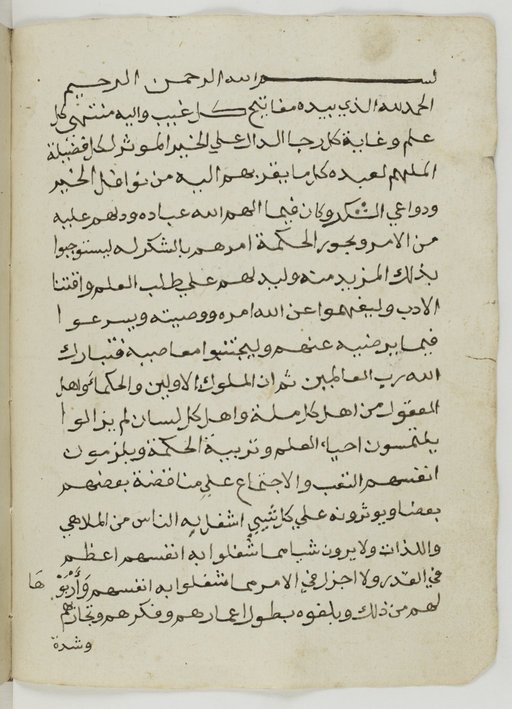 بسم الله الرحمن الرحيم
الحمد لله الذي بيده مفاتيح كل غيب واليه منتهي كل
علم وغاية كل رجا الدال علي الخير الموثر لكل فضيلة
الملهم لعبده كل ما يقربهم اليه من نوافل الخير
ودواعي الشكر وكان فيما الهم الله عباده ودلهم عليه
من الامر وبحور الحكمة امرهم بالشكر له ليستوجبوا
بذلك المزيد منه وليدلهم علي طلب العلم واقتنا
الادب وليفهموا عن الله امره ووصيته ويسرعوا
فيما يرضيه عنهم وليجتنبوا معاصيه فتبارك
الله رب العالمين ثم ان الملوك الاولين والحكما واهل
العقول من اهل كل ملة واهل كل لسان لم يزالوا
يلتمسون احياء العلم وتربية الحكمة ويلزمون
انفسهم التعب والاجتماع علي مناقضة بعضهم
بعضا ويوثرونه علي كل شيي اشغل به الناس من الملاهي
واللذات ولا يرون شيا مما شغلوا به انفسهم اعظم
في القدر ولا اجزل في الامر مما شغلوا به انفسهم
لهم من ذلك وبلغوه بطول اعمارهم وفكرهم
وشدة